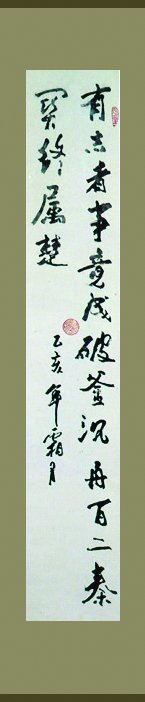 有志者事竟成破釜沉舟百二秦
关终属楚
乙亥年霜月